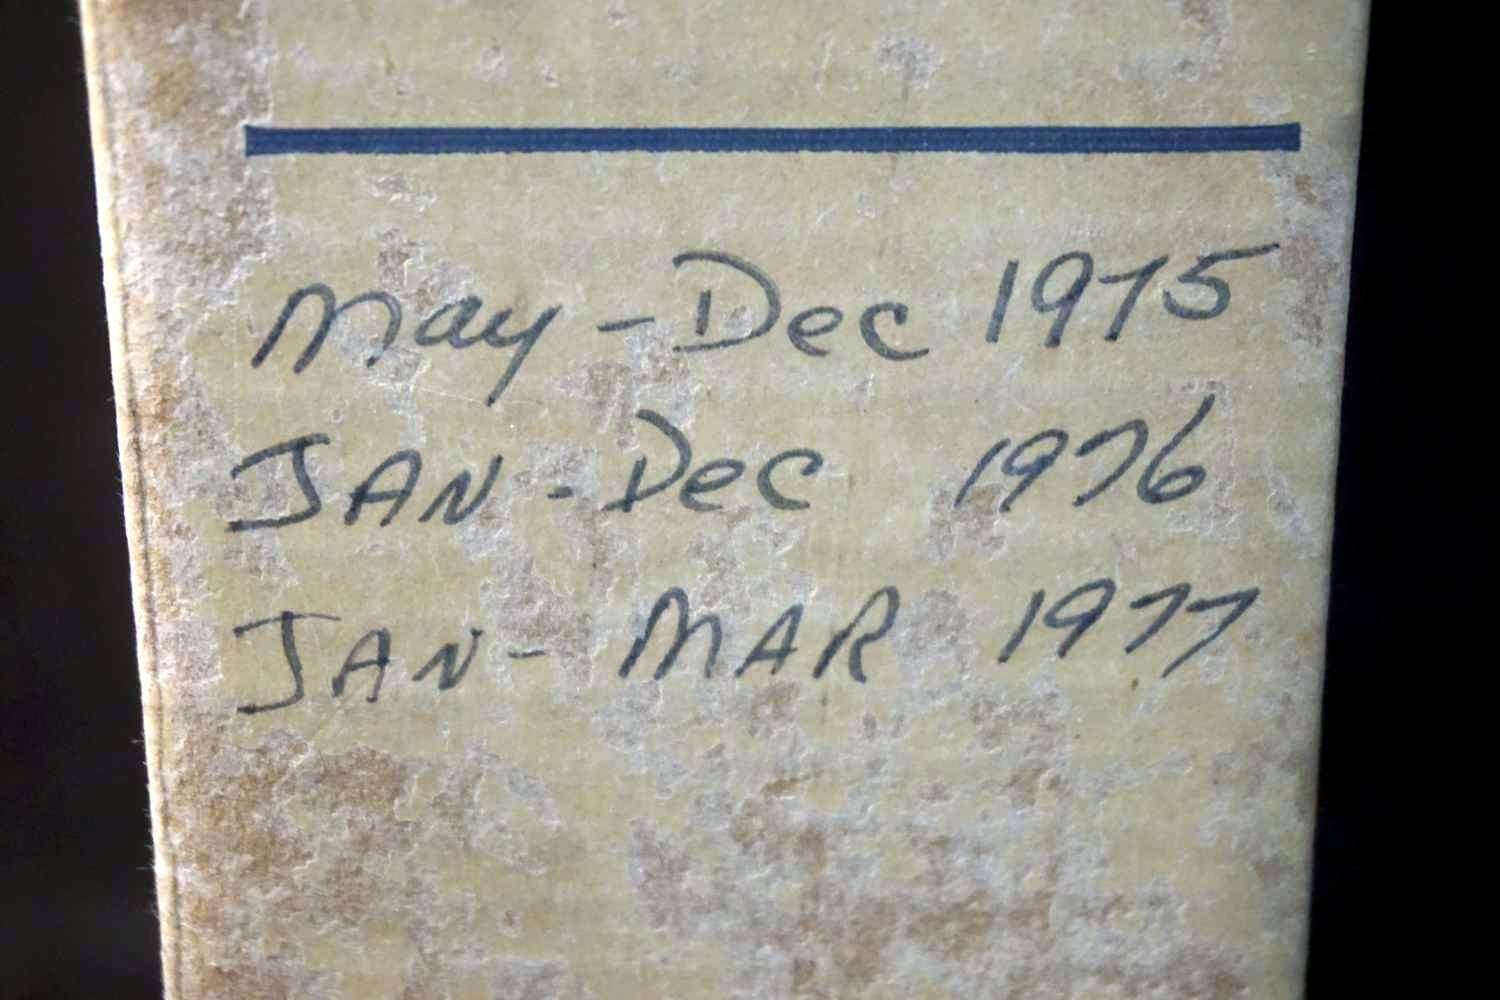 May - Dec 1975
JAN - Dec 1976
JAN - MAR 1977